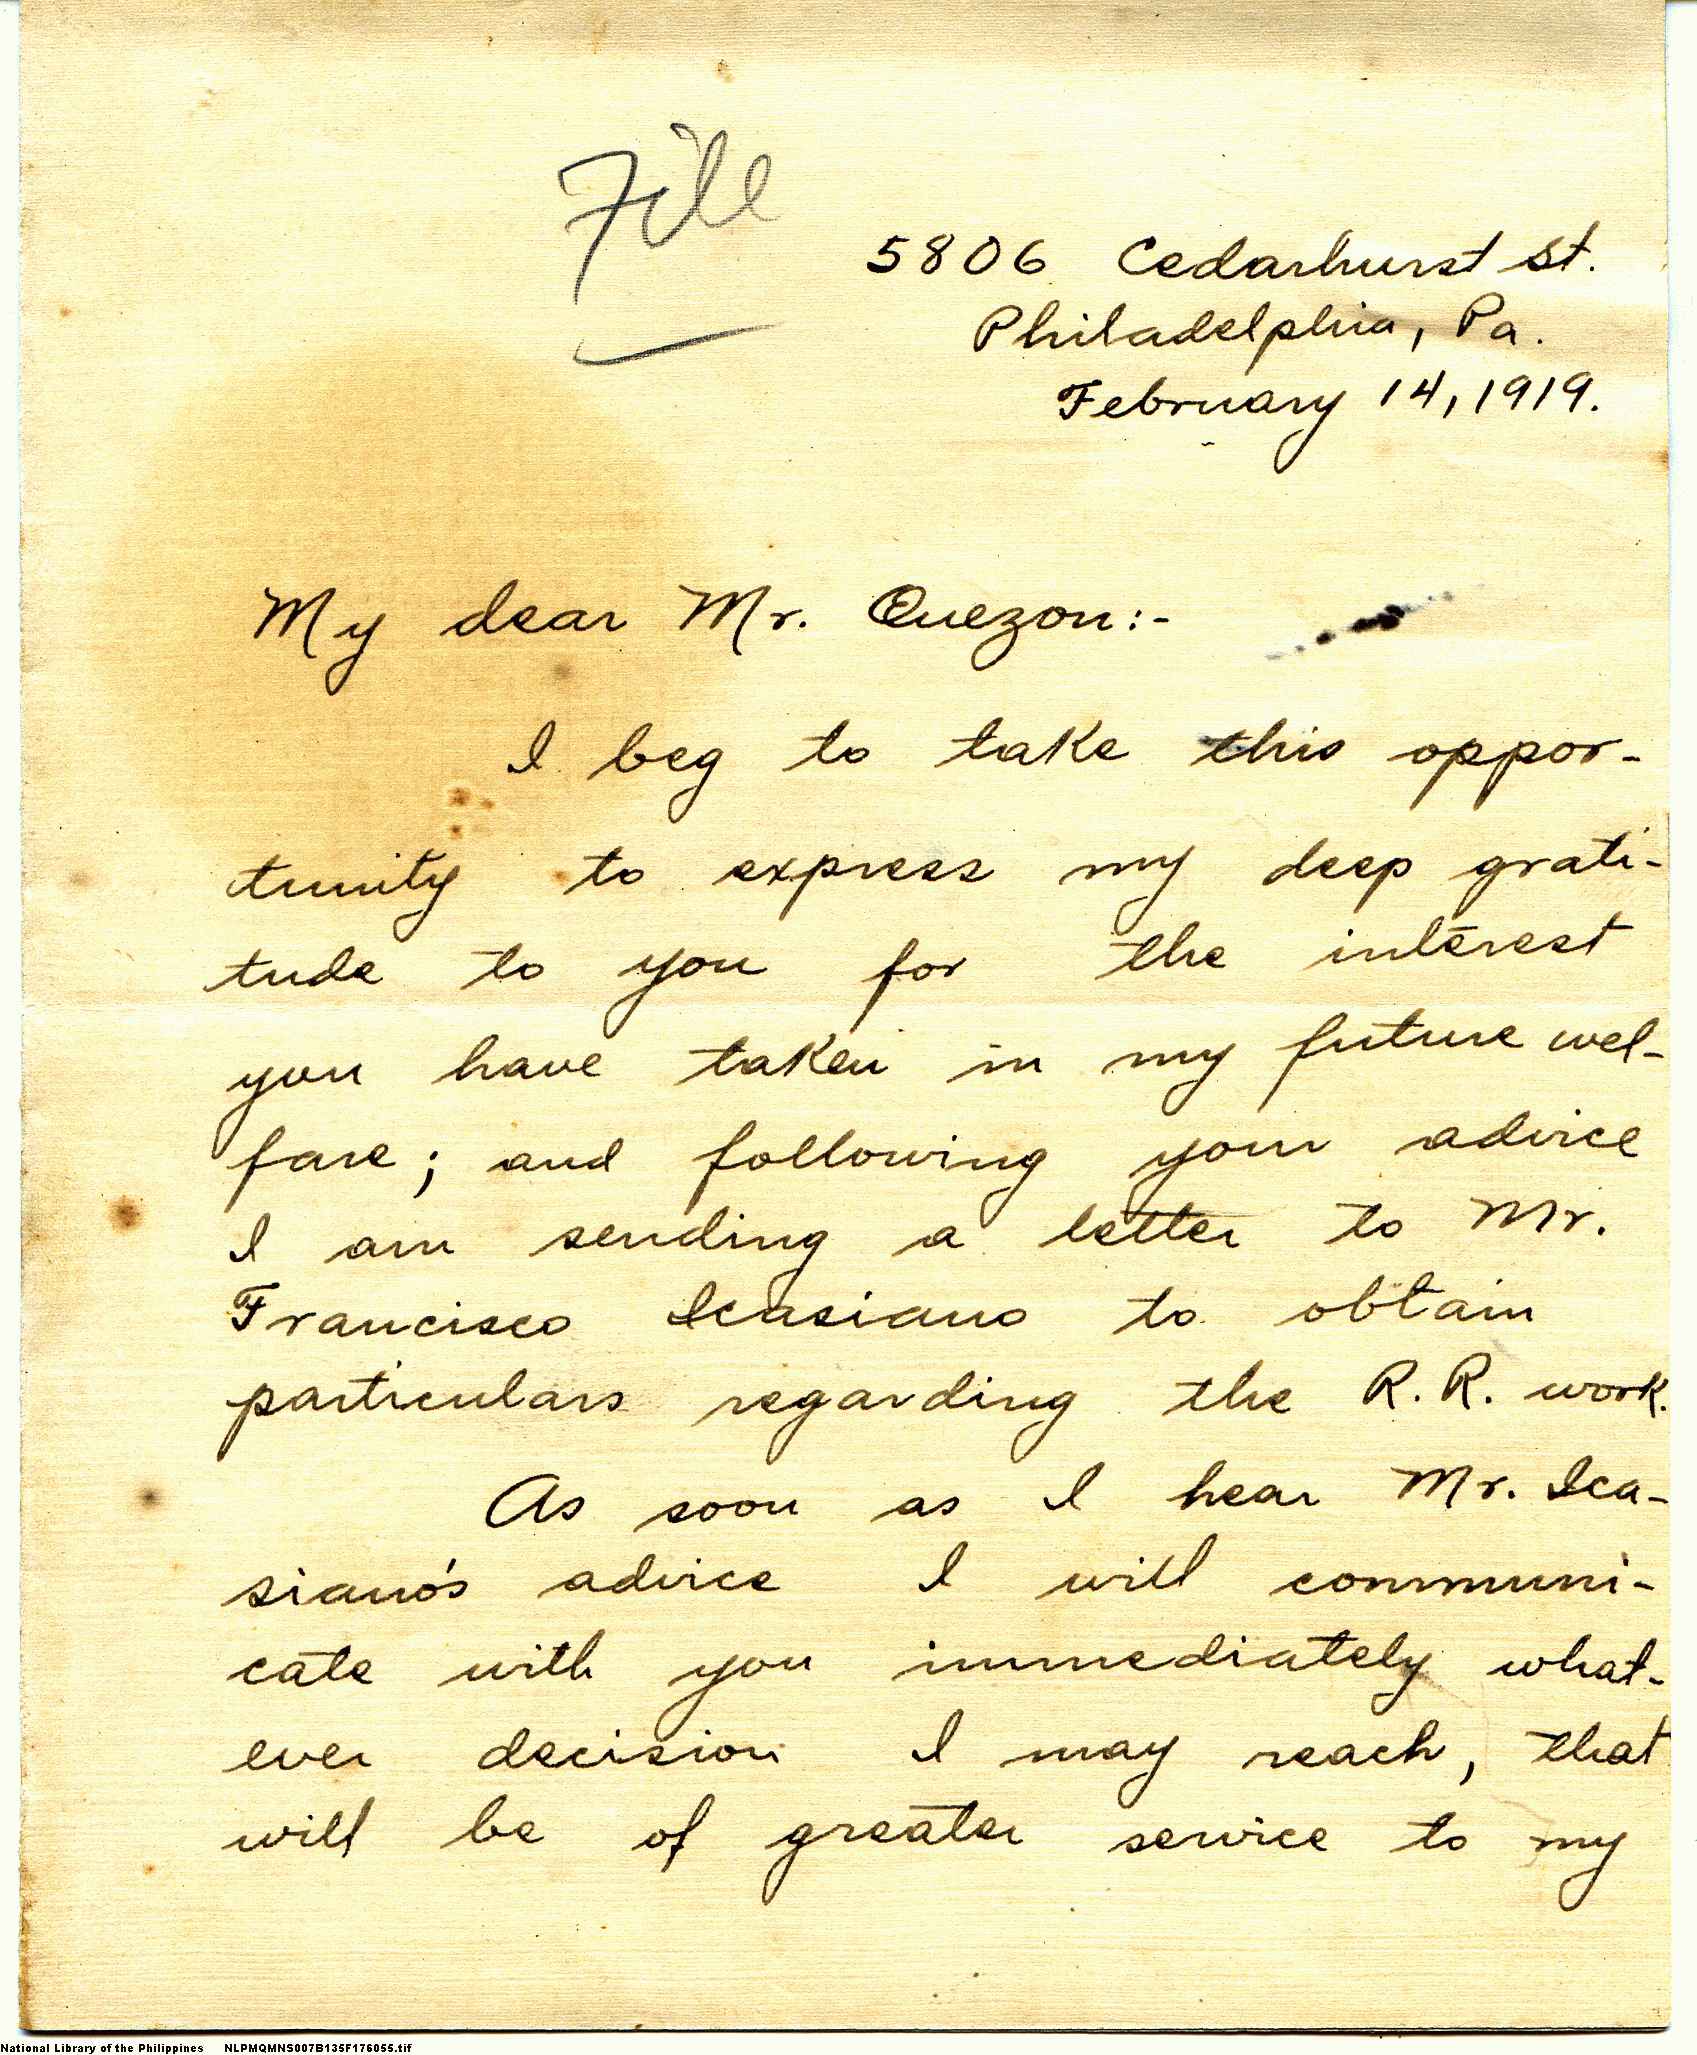 File
5806 Cedarhurst St.
Philadelphia, Pa.
February 14, 1919.
My dear Mr. Quezon:-
I beg to take this oppor-
tunity to express my deep grati-
tude to you for the interest
you have taken in my future wel-
fare; and following your advice
I am sending a letter to Mr.
Francisco Icasiano to obtain
particulars regarding the R.R. work.
As soon as I hear Mr. Ica-
siano's advice I will communi-
cate with you immediately what-
ever decision I may reach, that
will be of greater service to my
National Library of the Philippines NLPMQMNS007B135F176055.tif